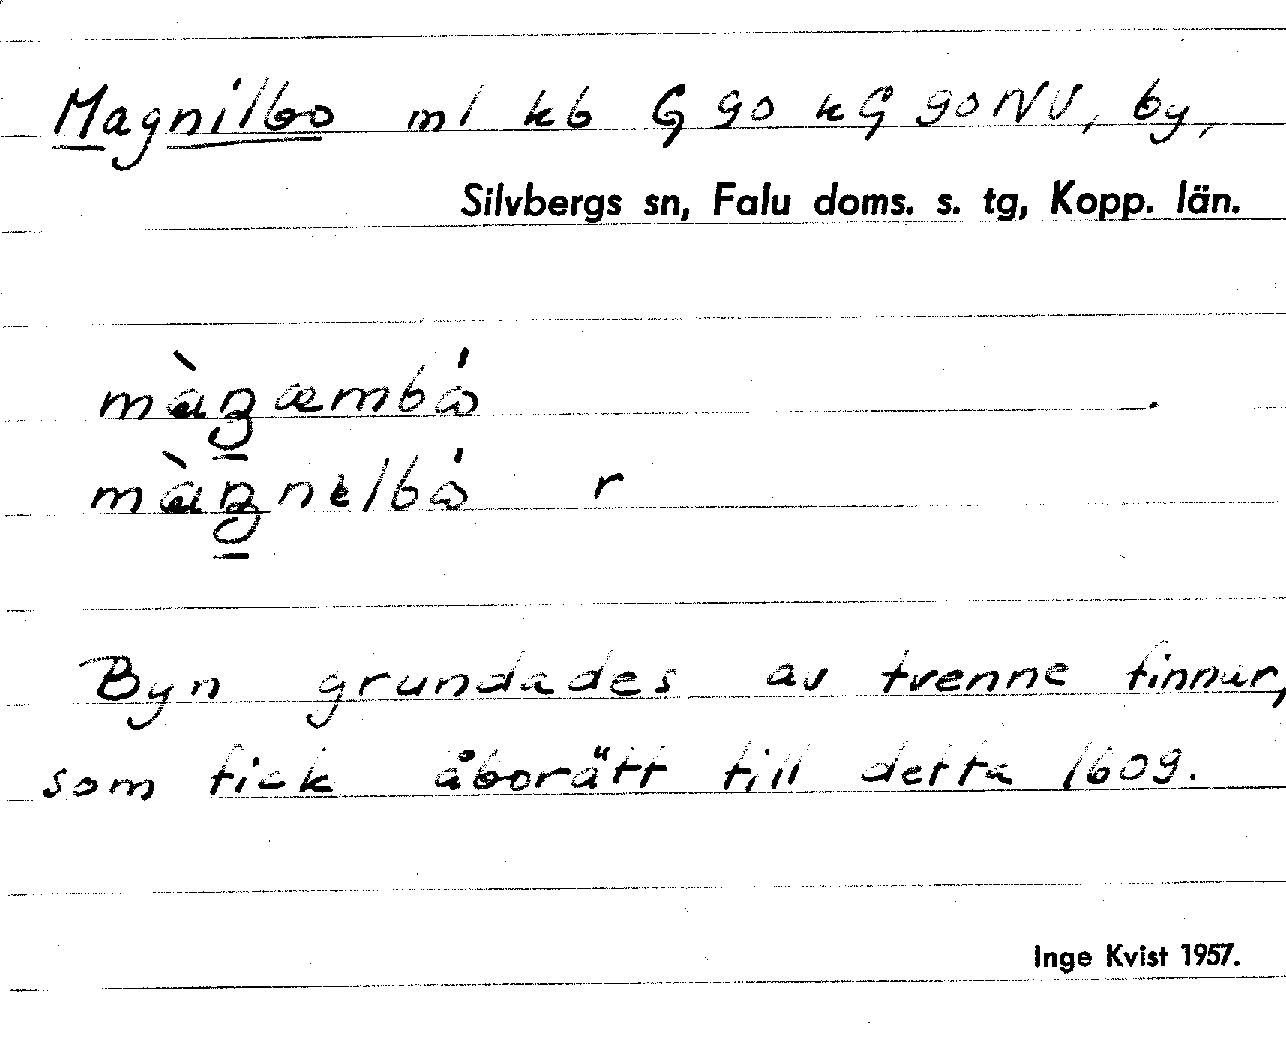 Magnilbo ml kb G 90 kG 90 NV, by,
Silvbergs sn, Falu doms. s. tg, Kopp. län.
màgæmbå
màgnelbå r
Byn grundades av tvenne finnar,
som fick åborätt till detta 1609.
Inge Kvist 1957.